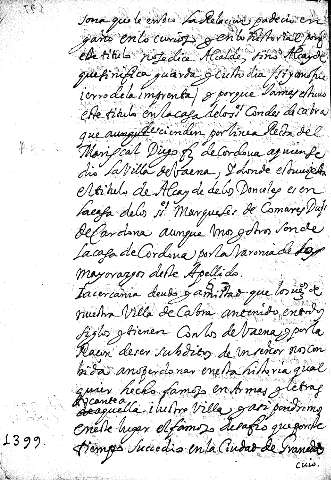 sona que le enbio la Relacion padecio en
gaño en lo curioso y en lo historial por q
este titulo no se dice Alcalde, sino Alcayde
que sinifica guarda y esto dia si yo no fue
ierro de la imprenta) y porque jamas estuvo
este titulo en la casa de los ss. Condes de cabra
que aunque decienden por linea Recta del
Mariscal Diego fz de Cordova a quien se
dio la Villa de Vaena, y donde estuvo
el titulo de Alcayde de los Donceles es en
la casa de los ss. Marqueses de Comares Duqs
de Cardona aunque unos y otros son de
la casa de Cordova por la Varonia de los
mayorazgos deste Apellido.
La cercania deudo y amistad que los vezs de
nuestra Villa de Cabra an tenido en todos
siglos y tienen con los de Vaena y por la
Racon de ser subditos de un señor nos con
bida a no perdonar en esta historia qual
quier hecho famoso en Armas y letras
tocante
aquella ilustre Villa, y asi pondremos
en este lugar el famoso desafio que por este
1399. tiempo sucedio en la Ciudad de Granada
cuio